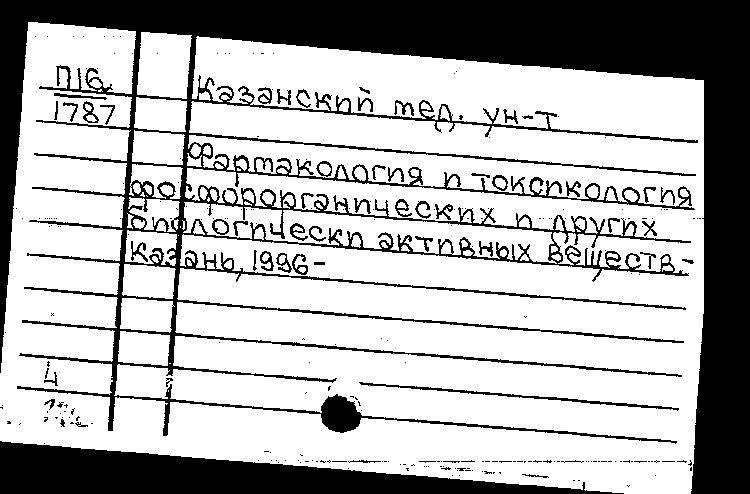 П16
1787
Казанский мед. ун-т
Фармакология и токсикология
фосфорорганических и других
биологически активных веществ.-
Казань, 1996-
4